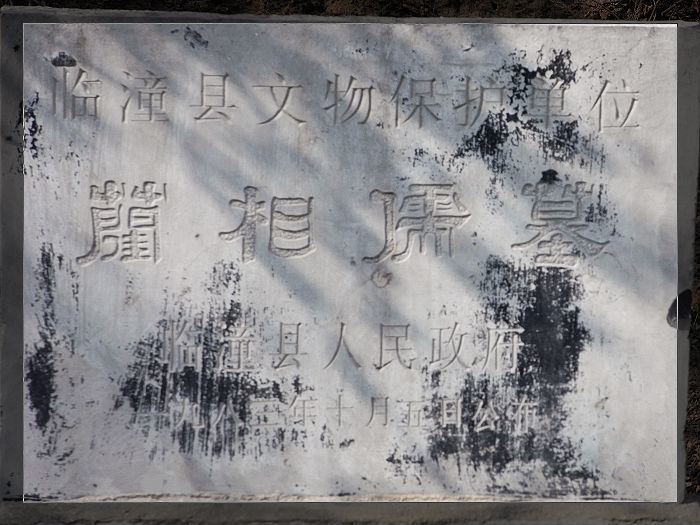 临潼县文物保护单位
藺相儒墓
临潼县人民政府
一九八三年十月五日公布